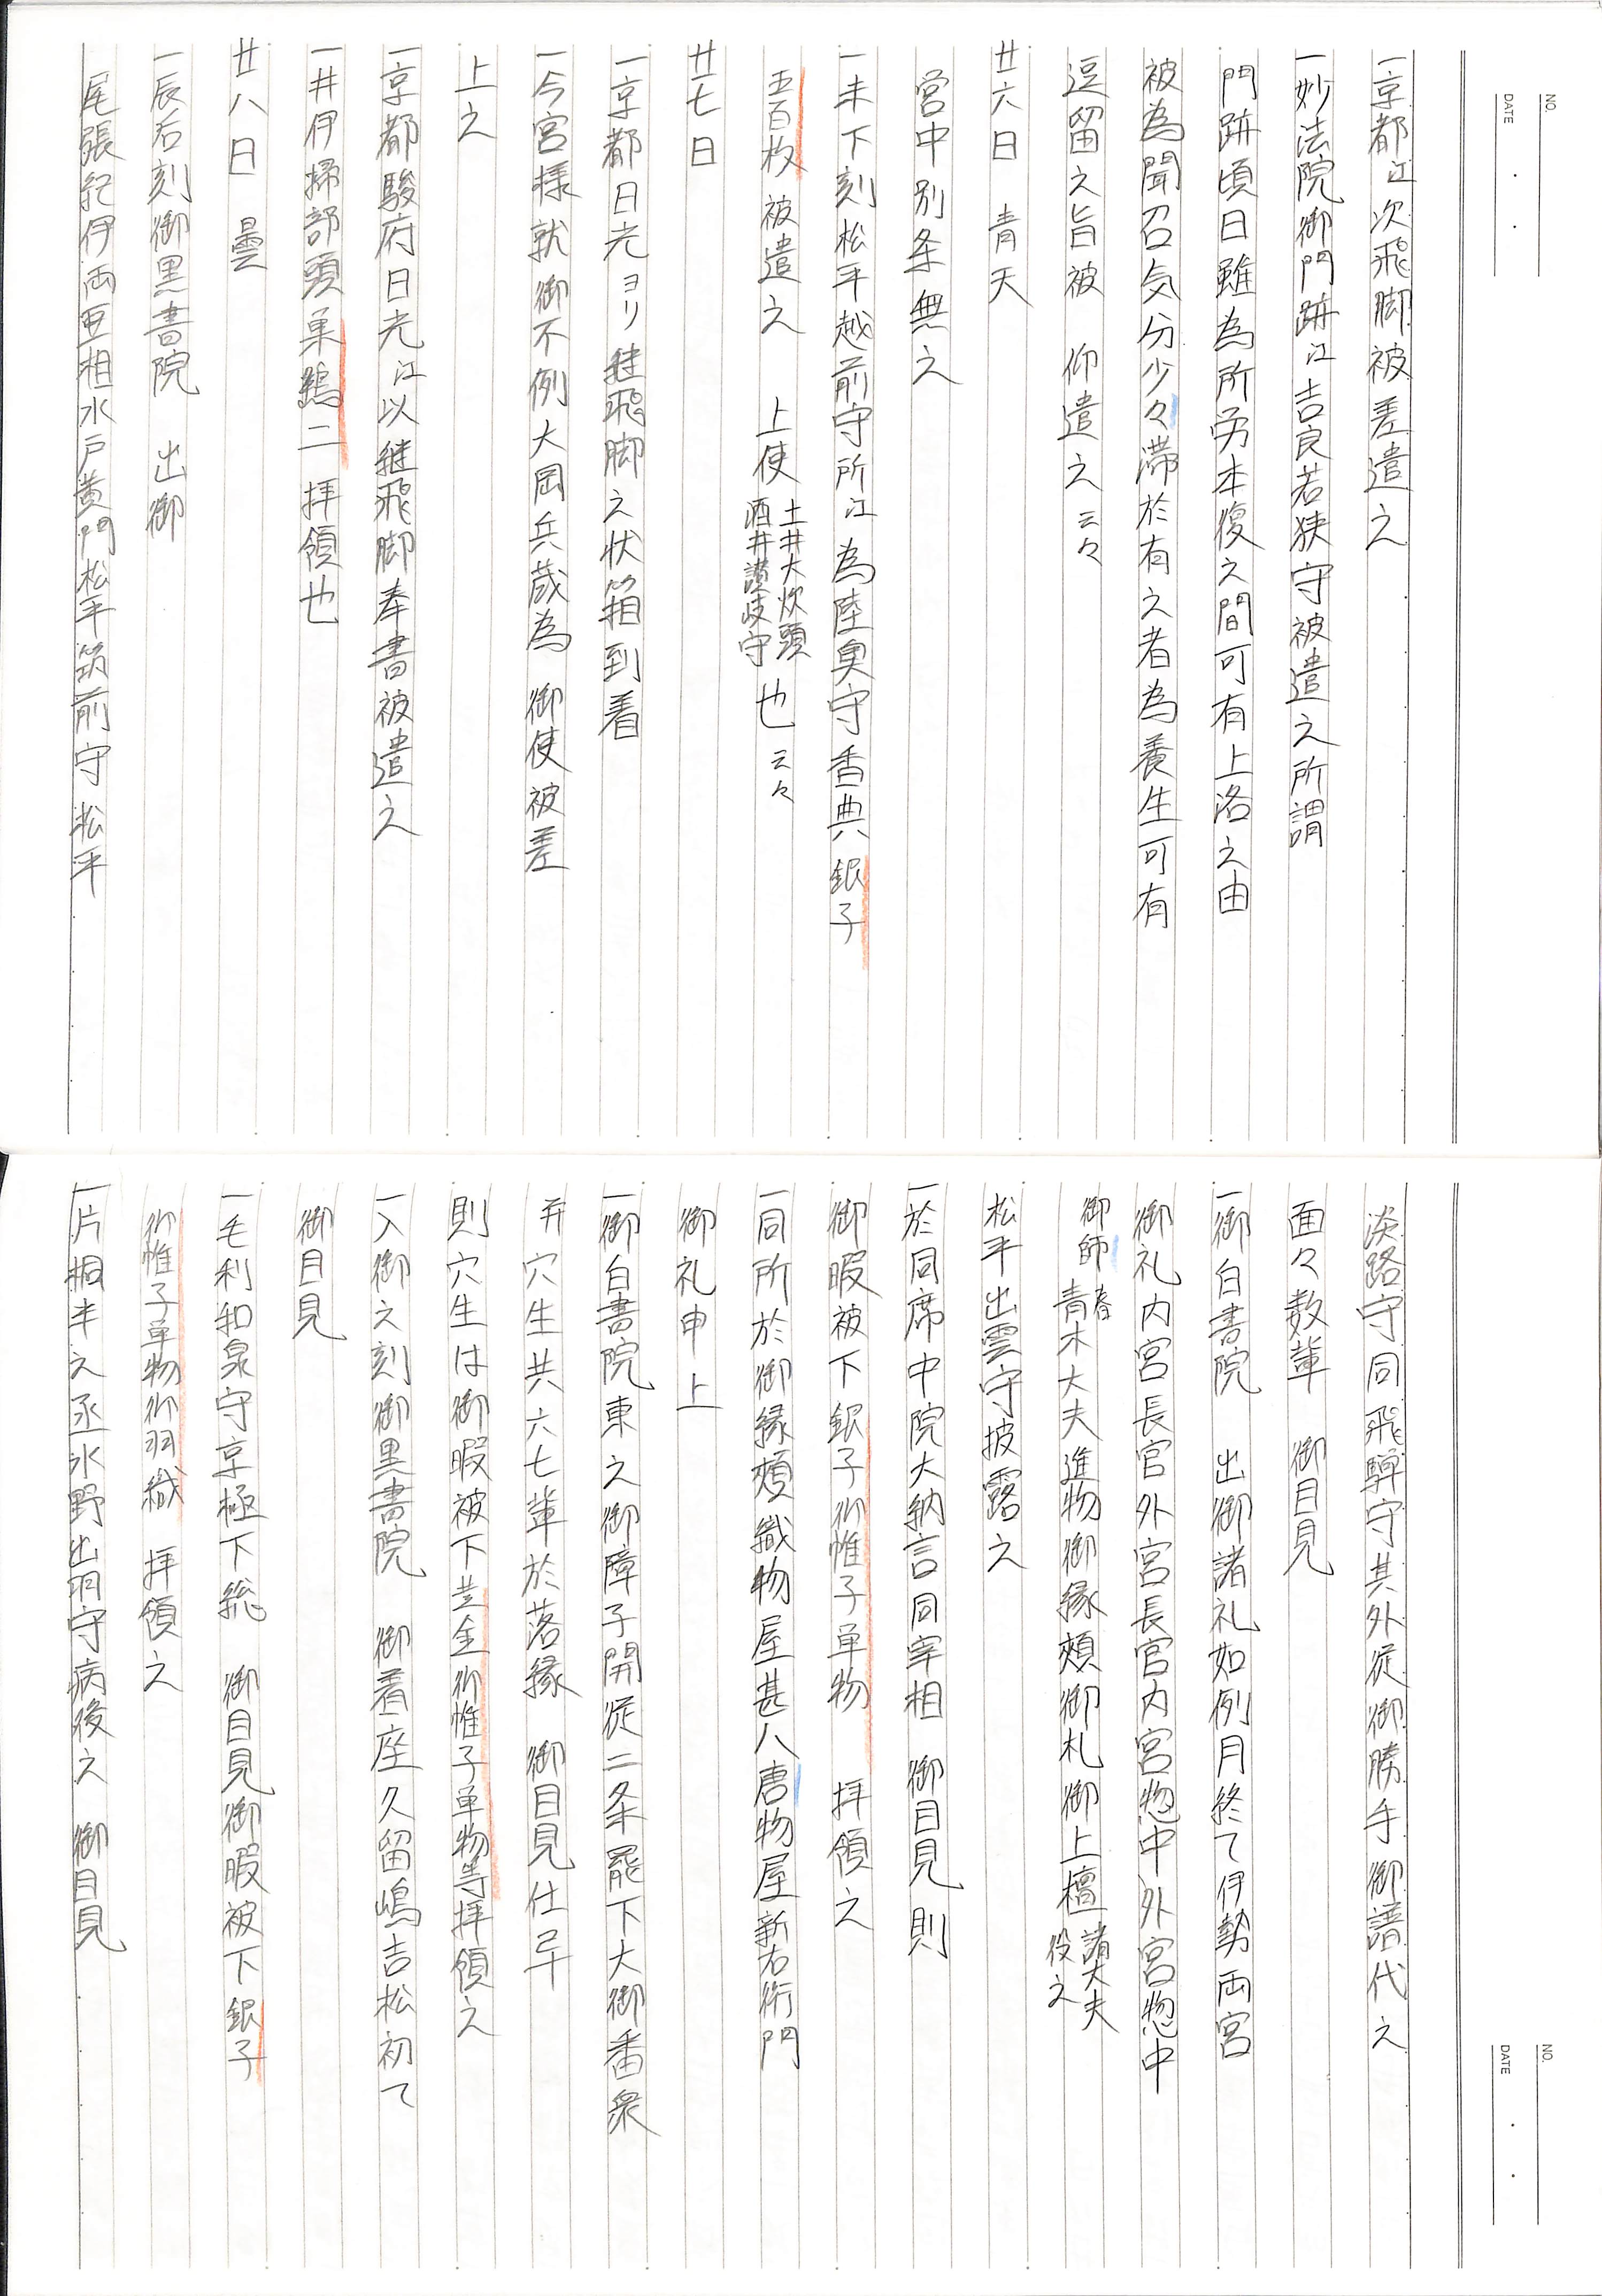 NO.
DATE
一京都江次飛脚被差遣之
一妙法院御門跡江吉良若狭守被遣之所謂
門跡頃日雖為所労本復之間可有上洛之由
被為聞召気分少々滞於有之者為養生可有
逗留之旨被 仰遣之云々
廿六日 青天
営中別条無之
一未下刻松平越前守所江為陸奥守香典銀子
五百枚被遣之 上使土井大炊頭酒井讃岐守也云々
廿七日
一京都日光ヨリ継飛脚之状箱到着
一今宮様就御不例大岡兵蔵為 御使被差
上之
一京都駿府日光江以継飛脚奉書被遣之
一井伊掃部頭巣鷂二拝領也
廿八日 曇
一辰后刻御黒書院 出御
尾張紀伊両亜相水戸黄門松平筑前守松平
NO.
DATE
淡路守同飛騨守其外従御勝手御譜代之
面々数輩 御目見
一御白書院 出御諸礼如例月終て伊勢両宮
御礼内宮長官外宮長官内宮惣中外宮惣中
御師春青木大夫進物御縁頬御札御上檀諸大夫役之
松平出雲守披露之
一於同席中院大納言同宰相 御目見則
御暇被下銀子御帷子単物 拝領之
一同所於御縁頬織物屋甚八唐物屋新右衛門
御礼申上
一御白書院東之御障子開従二条罷下大御番衆
并穴生共六七輩於落縁 御目見仕畢
則穴生は御暇被下黄金御帷子単物等拝領之
一入御之刻御黒書院 御着座久留嶋吉松初て
御目見
一毛利和泉守京極下総 御目見御暇被下銀子
御帷子単物御羽織 拝領之
一片桐半之丞水野出羽守病後之 御目見